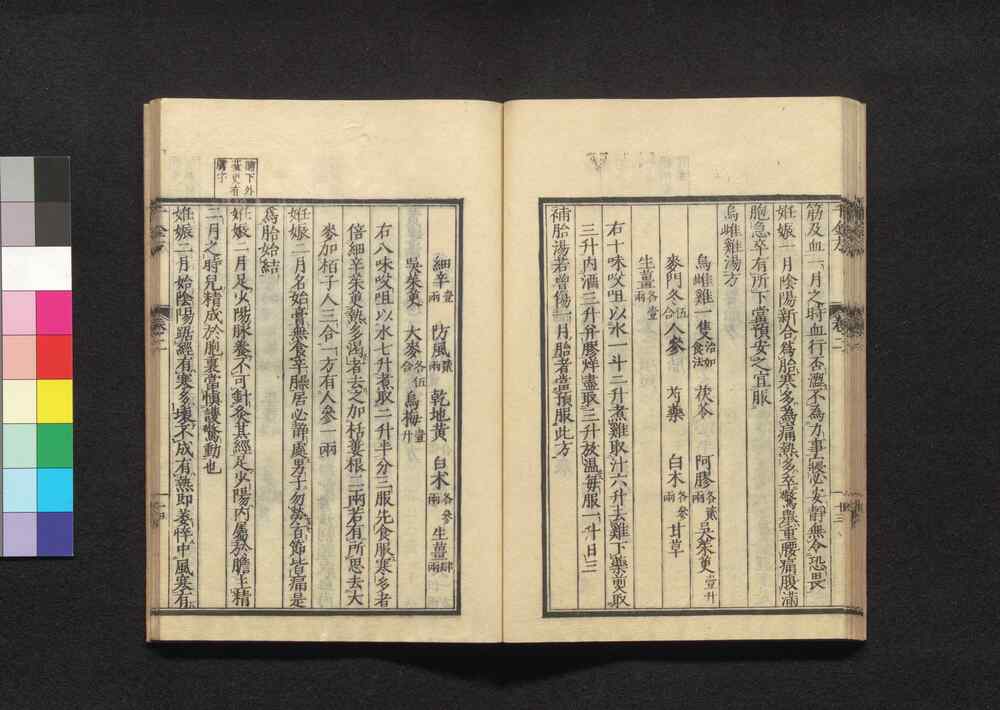 筋及血一月之時血行否澀不為力事寢必安靜無令恐畏
妊娠一月陰陽新合為胎寒多為痛熱多卒驚舉重腰痛腹滿
胞急卒有所下當預安之宜服
烏雌雞湯方
烏雌雞一隻治如食法 茯苓 阿膠各貳兩 吳茱萸壹升
麥門冬伍合 人參 芍藥 白朮各參兩 甘草
生薑各壹兩
右十味㕮咀以水一斗二升煮雞取汁六升去雞下藥煎取
三升內酒三升并膠烊盡取三升放溫每服一升日三
補胎湯若曾傷一月胎者當預服此方
細辛壹兩 防風貳兩 乾地黃 白朮各參兩 生薑肆兩
吳茱萸 大麥各伍合 烏梅壹升
右八味㕮咀以水七升煮取二升半分三服先食服寒多者
倍細辛茱萸熱多渴者去之加栝蔞根二兩若有所思去大
麥加柏子人三合一方有人參一兩
妊娠二月名始膏無食辛臊居必靜處男子勿勞百節皆痛是
為胎始結
妊娠二月足少陽脈養不可針灸其經足少陽內屬於膽主精
二月之時兒精成於胞裏當慎護驚動也
妊娠二月始陰陽踞經有寒多壞不成有熱即萎悴中風寒有
卷二
十四